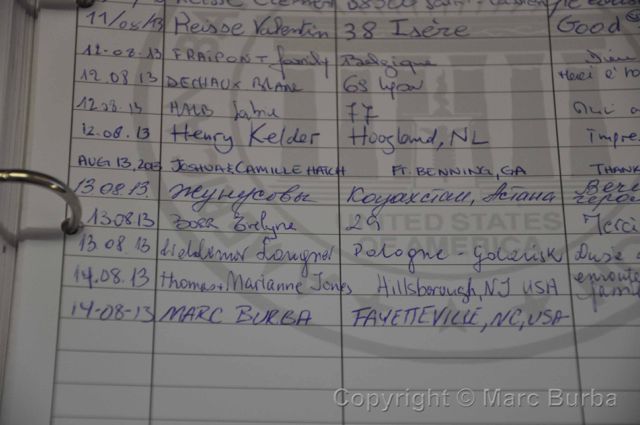 11/08/13 Reisse Valentin 38 Isère Good
12-08-13 FRAIPONT family Belgique
12.08.13 DECHAUX BLANC 69 Lyon Merci à
12.08.13 77
12.08.13 Henry Kelder Hoogland, NL
AUG 13, 2013 JOSHUA & CAMILLE HATCH FT. BENNING, GA THANK
13.08.13. Жунусовы Казахстан, Астана
13.08.13 29 Merci
13.08.13 Pologne - Gdańsk
14.08.13 Thomas + Marianne Jones Hillsborough, NJ USA enroute
14-08-13 MARC BURBA FAYETTEVILLE, NC, USA
UNITED STATES
OF AMERICA
Copyright © Marc Burba